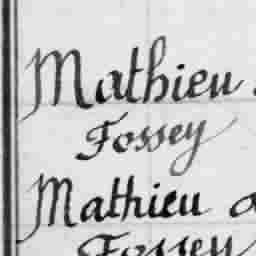 Mathieu
Fossey
Mathieu
Fossey